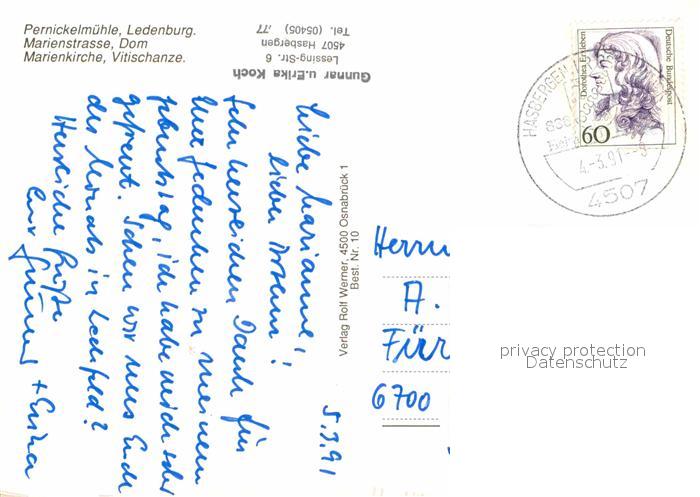 Pernickelmühle, Ledenburg.
Marienstrasse, Dom
Marienkirche, Vitischanze.
Gunnar u. Erika Koch
Lessing-Str. 6
4507 Hasbergen
Tel. (05405) .77
Deutsche Bundespost
Dorothea Erxleben
60
HASBERGEN
4.-3.91
4507
5.3.91
Liebe Marianne!
lieber !
Sehr herzlichen Dank für
Euer Gedenken zu meinem
Geburtstag, ich habe mich sehr
gefreut. Sehen wir uns Ende
des Monats in Lechfeld?
Herzliche Grüße
Eure Gunnar + Erika
Verlag Rolf Werner, 4500 Osnabrück 1
Best. Nr. 10
Herrn
A.
Fürr
6700
privacy protection
Datenschutz